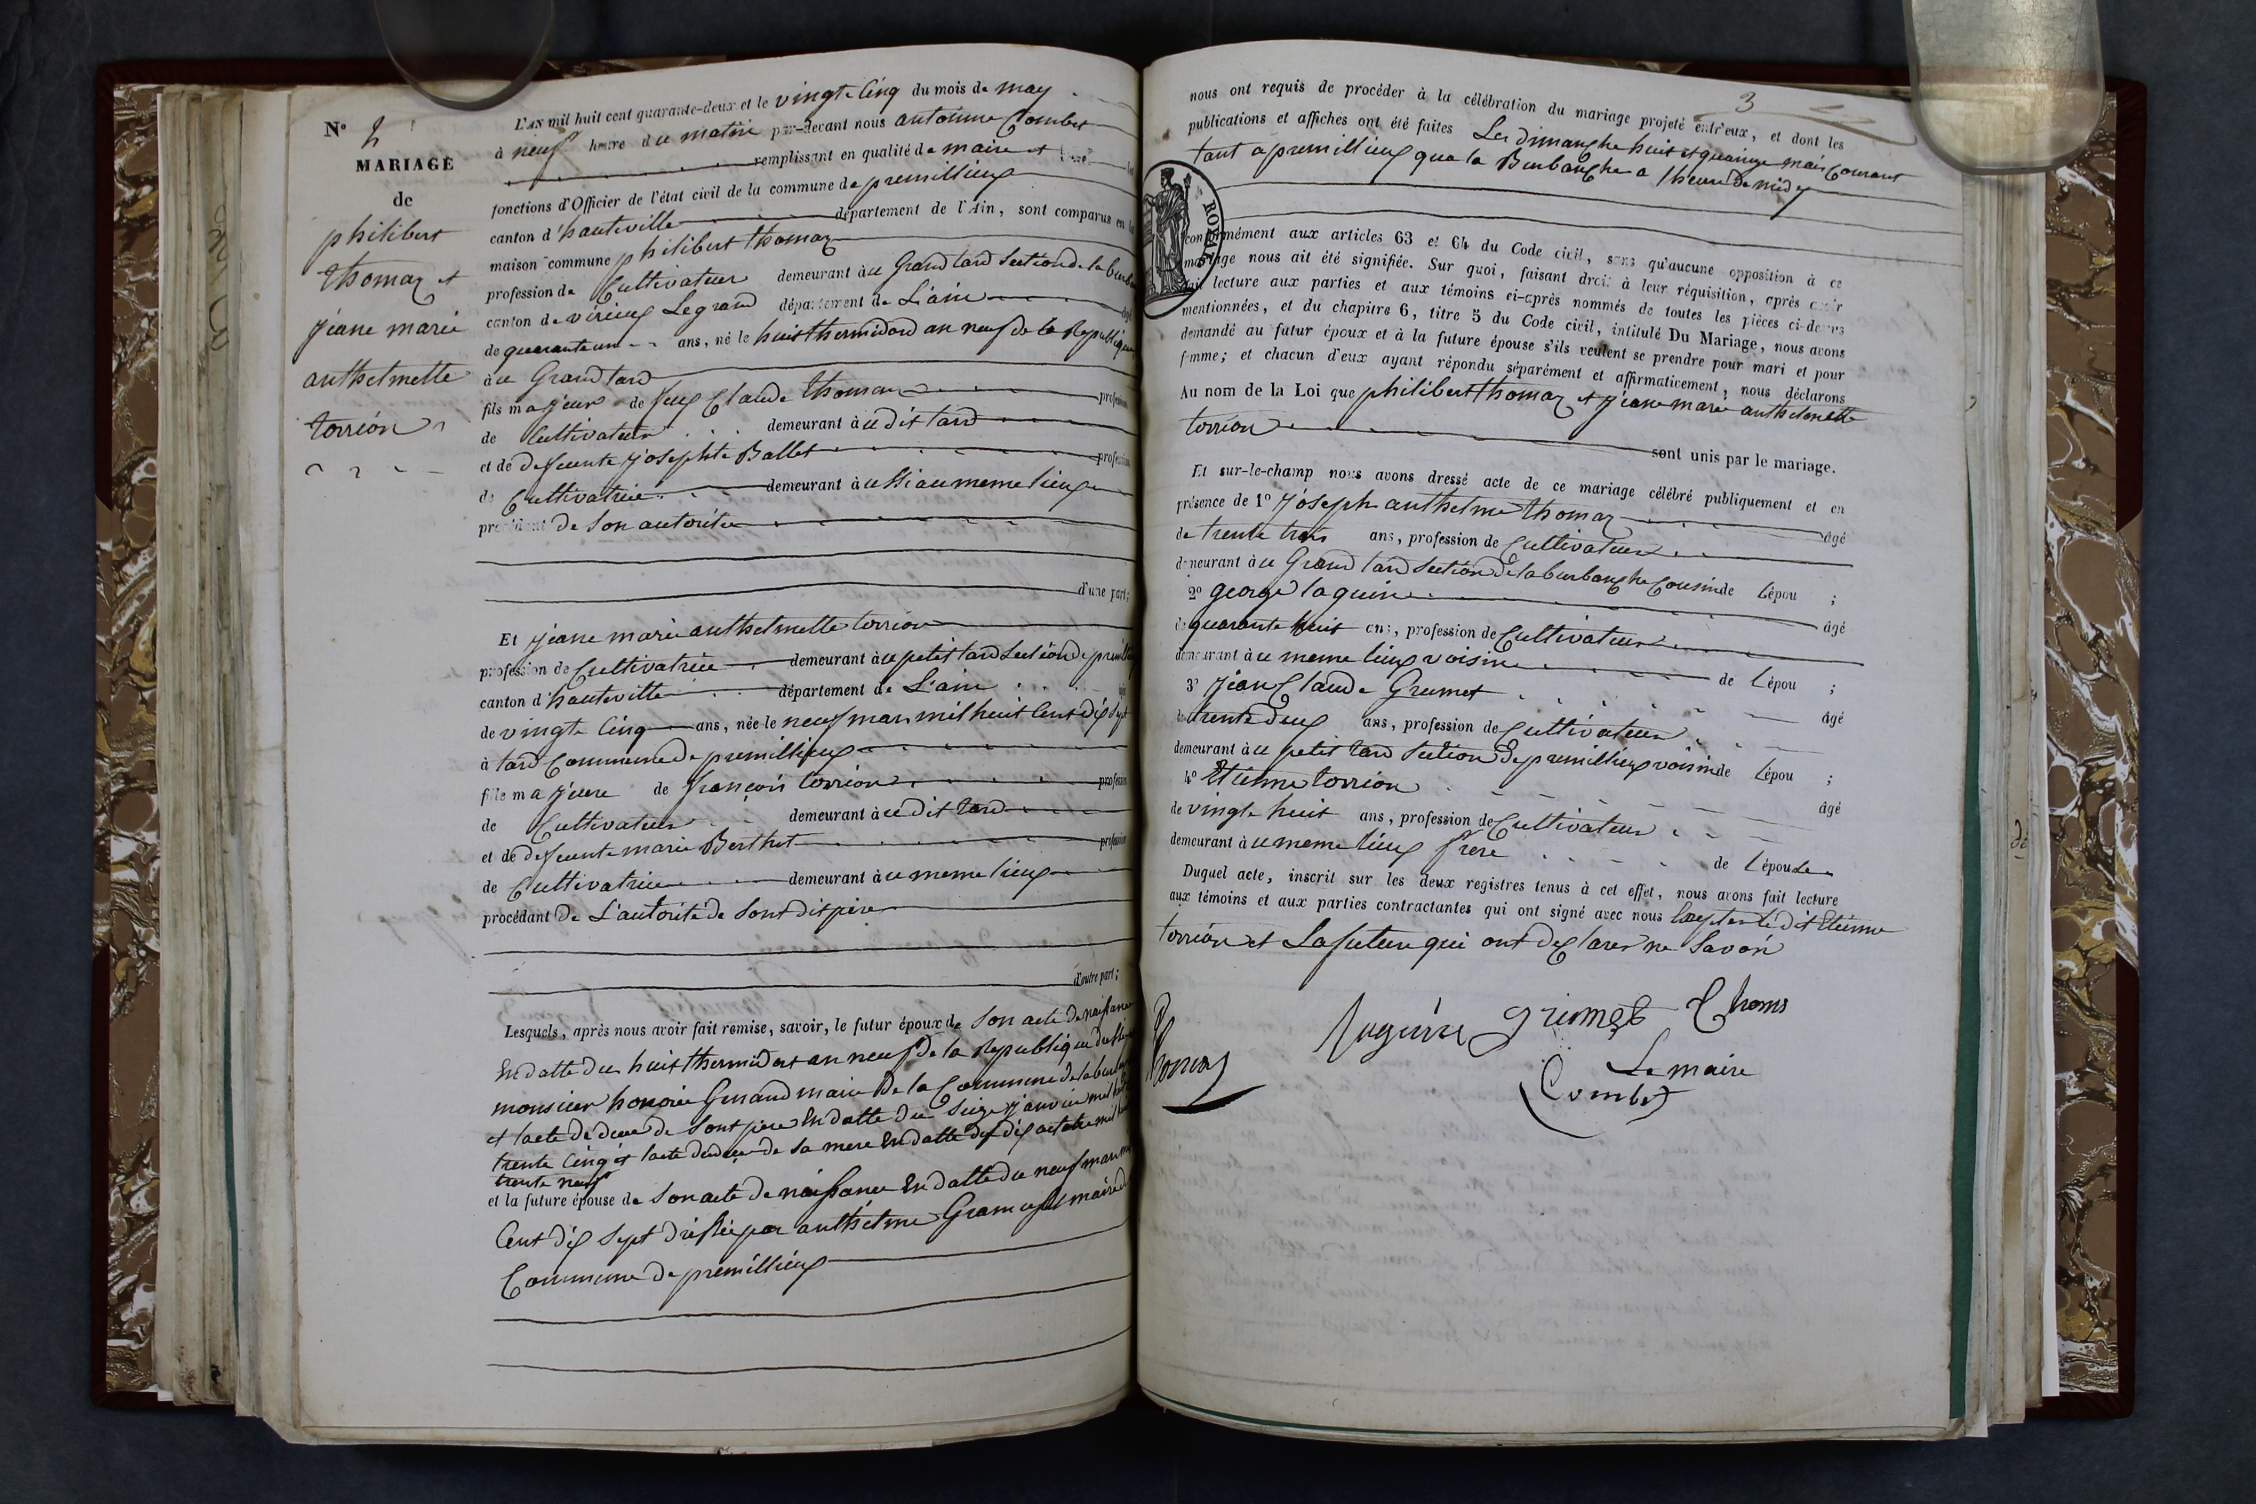 N° 2
MARIAGE
de
philibert
thomaz et
jeane marie
anthelmette
torrion
L'AN mil huit cent quarante-deux et le vingt Cinq du mois de may
à neuf heure du matin par-devant nous antoinne Combet
remplissant en qualité de maire et les
fonctions d'Officier de l'état civil de la commune de premillieux
canton d'hauteville département de l'Ain, sont comparus en la
maison commune philibert thomaz
profession de Cultivateur demeurant à u Grand tard Section de la burb
canton de virieux Legrand département de L'ain âgé
de quaranteun ans, né le huit thermidord an neuf de la Republique
à u Grand tard
fils majeur de feux Claude thomaz profession
de Cultivateur demeurant à u dit tard
et de deffeunte josephte Ballet profession
de Cultivatrice demeurant à ussi au meme lieux
procédant de Son autorité
d'une part;
Et jeane marie anthelmette torrion
profession de Cultivatrice demeurant à u petit tard Section de premillieux
canton d'hauteville département de L'ain
de vingt Cinq ans, née le neuf mars mil huit Cent dix Sept
à tard Commune de premillieux
fille majeure de françois torrion profession
de Cultivateur demeurant à u dit tard
et de deffeunte marie Berthet profession
de Cultivatrice demeurant à u meme lieux
procédant de L'autorité de Sont dit père
d'autre part;
Lesquels, après nous avoir fait remise, savoir, le futur époux de Son acte de naissance
En datte du huit thermidort an neuf de la Republique
monsieur honorée Genand maire de la Commune de la
et lacte de de Sont pere En datte du Seize janvier mil
trente Cinq et lacte de de Sa mere En datte du dix octobre mil
trente neuf
et la future épouse de Son acte de naissance En datte du neuf mars
Cent dix Sept par anthelme maire de
Commune de premillieux
3
nous ont requis de procéder à la célébration du mariage projeté entr'eux, et dont les
publications et affiches ont été faites Les dimanche huit et quinze mais Courant
tant a premillieux que la Burbanche a lheure de midy
ROYAL
conformément aux articles 63 et 64 du Code civil, sans qu'aucune opposition à ce
mariage nous ait été signifiée. Sur quoi, faisant droit à leur réquisition, après avoir
fait lecture aux parties et aux témoins ci-après nommés de toutes les pièces ci-dessus
mentionnées, et du chapitre 6, titre 5 du Code civil, intitulé Du Mariage, nous avons
demandé au futur époux et à la future épouse s'ils veulent se prendre pour mari et pour
femme; et chacun d'eux ayant répondu séparément et affirmativement, nous déclarons
Au nom de la Loi que philibert thomaz et jeane marie anthelmette
torrion
sont unis par le mariage.
Et sur-le-champ nous avons dressé acte de ce mariage célébré publiquement et en
présence de 1° joseph anthelme thomaz
âgé
de trente trois ans, profession de Cultivateur
demeurant à u Grand tard Section de la burbanche Cousin de Lépou ;
2° george laguin
âgé
de quarante huit ans, profession de Cultivateur
demeurant à u meme lieux voisin de Lépou ;
3° jean Claude Grumet
âgé
de trente deux ans, profession de Cultivateur
demeurant à u petit tard Section de premillieux voisin de Lépou ;
4° Etienne torrion
âgé
de vingt huit ans, profession de Cultivateur
demeurant à u meme lieux frere de Lépouse
Duquel acte, inscrit sur les deux registres tenus à cet effet, nous avons fait lecture
aux témoins et aux parties contractantes qui ont signé avec nous Etienne
torrion et La future qui ont declarer ne Savoir
grumet thoms
Le maire
Combet